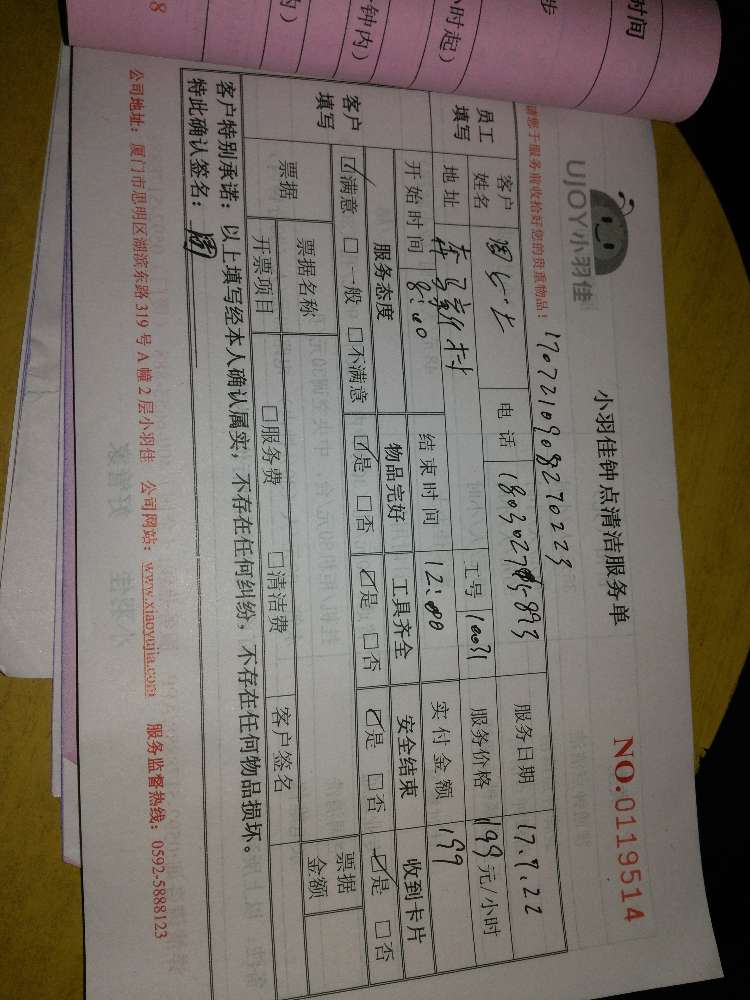 时间
步
小时起）
钟内）
内）
8
UJOY小羽佳
小羽佳钟点清洁服务单
NO.0119514
请您于服务前收拾好您的贵重物品！
1707210908270223
员工填写
客户姓名 周女士 电话 服务日期 17.7.22
地址 工号 10031 服务价格 199元/小时
开始时间 8:00 结束时间 12:00 实付金额 199
客户填写
服务态度 物品完好 工具齐全 安全结束 收到卡片
☑满意 □一般 □不满意 ☑是 □否 ☑是 □否 ☑是 □否 ☑是 □否
票据 票据名称 票据金额
开票项目 □服务费 □清洁费 客户签名
客户特别承诺：以上填写经本人确认属实，不存在任何纠纷，不存在任何物品损坏。
特此确认签名：周
公司地址：厦门市思明区湖滨东路319号A幢2层小羽佳 公司网站：www.xiaoyujia.com 服务监督热线：0592-5888123